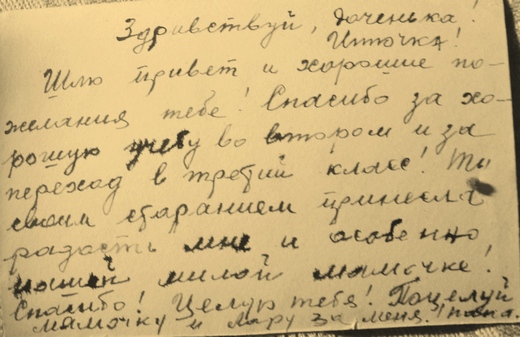 Здравствуй, доченька!
Инточка!
Шлю привет и хорошие по-
желания тебе! Спасибо за хо-
рошую учебу во втором и за
переход в третий класс! Ты
своим старанием принесла
радость мне и особенно
нашей милой мамочке!
Спасибо! Целую тебя! Поцелуй
мамочку и Лару за меня! папа.